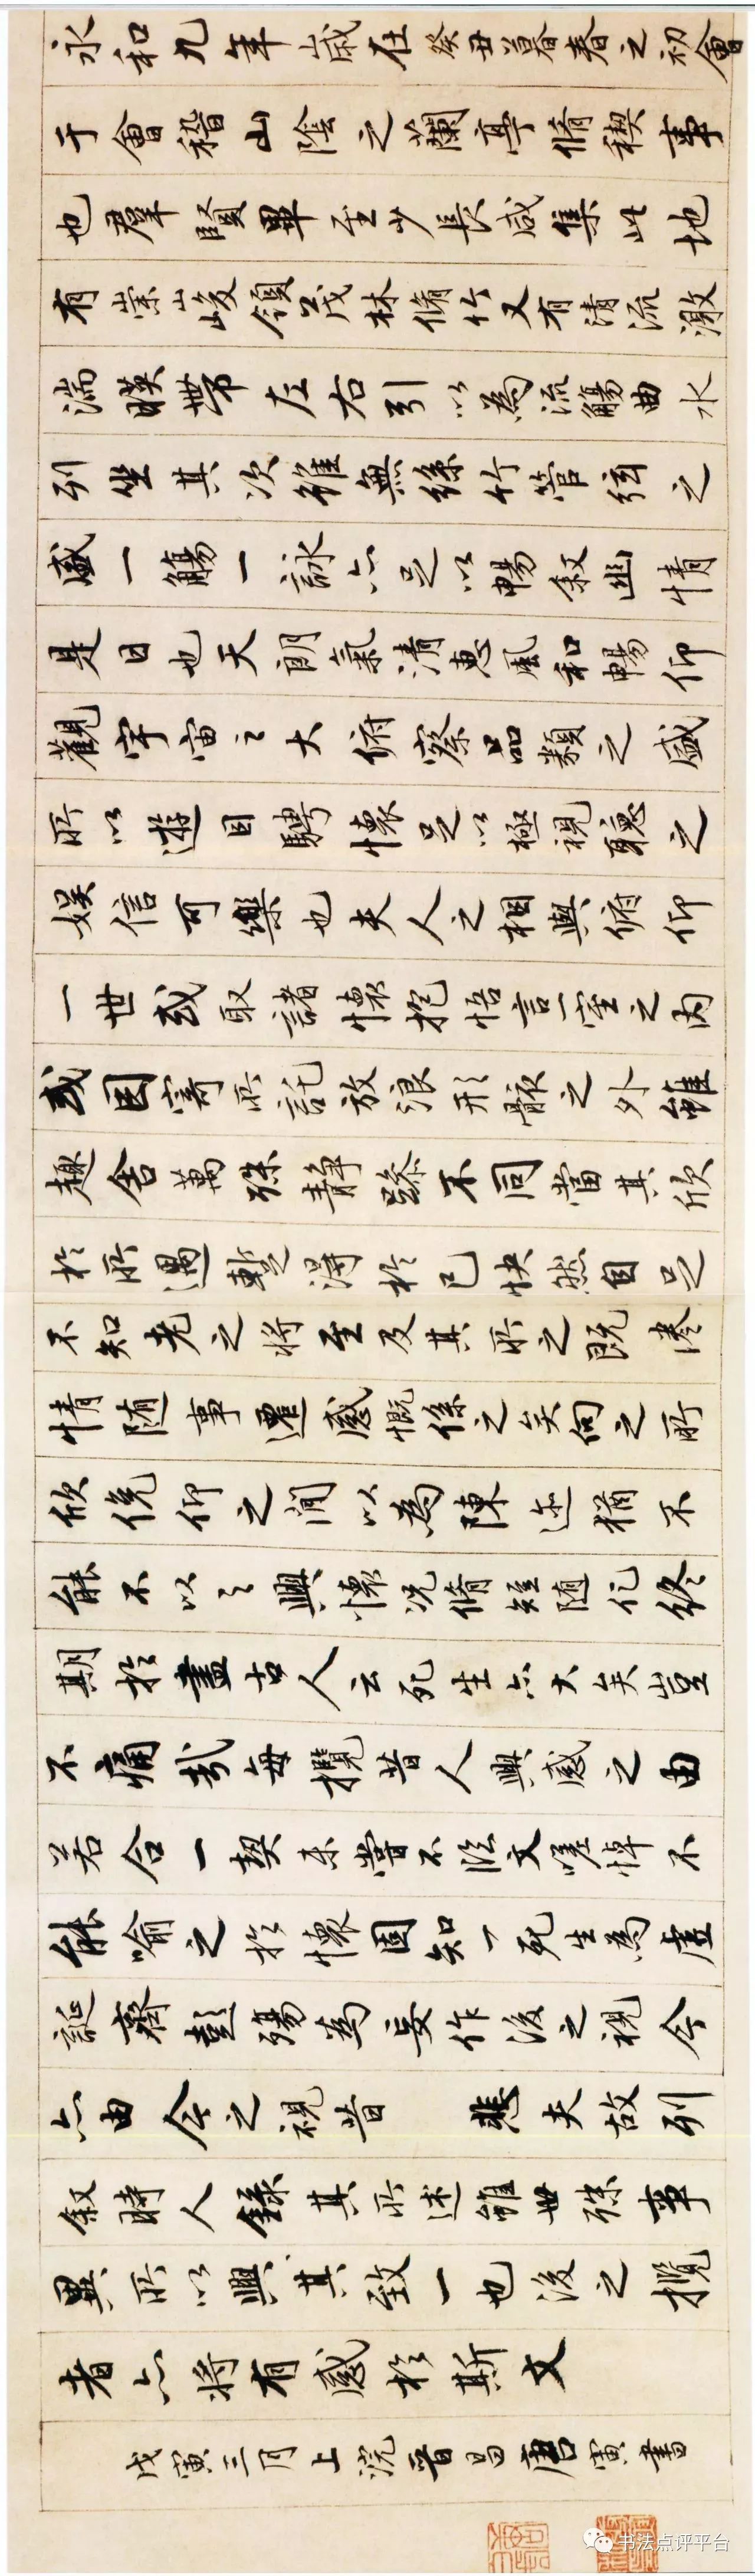 永和九年歲在癸丑暮春之初會
于會稽山陰之蘭亭脩稧事
也羣賢畢至少長咸集此地
有崇山峻領茂林脩竹又有清流激
湍暎帶左右引以為流觴曲水
列坐其次雖無絲竹管弦之
盛一觴一詠亦足以暢敘幽情
是日也天朗氣清惠風和暢仰
觀宇宙之大俯察品類之盛
所以遊目騁懷足以極視聽之
娛信可樂也夫人之相與俯仰
一世或取諸懷抱悟言一室之內
或因寄所託放浪形骸之外雖
趣舍萬殊靜躁不同當其欣
於所遇暫得於己快然自足
不知老之將至及其所之既惓
情隨事遷感慨係之矣向之所
欣俛仰之間以為陳迹猶不
能不以之興懷況脩短隨化終
期於盡古人云死生亦大矣豈
不痛哉每攬昔人興感之由
若合一契未嘗不臨文嗟悼不
能喻之於懷固知一死生為虛
誕齊彭殤為妄作後之視今
亦由今之視昔 悲夫故列
敘時人錄其所述雖世殊事
異所以興其致一也後之攬
者亦將有感於斯文
戊寅三月上浣晉昌唐寅書
书法点评平台